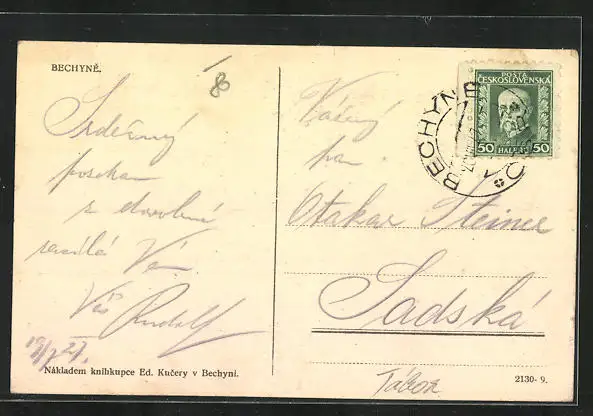 BECHYNĚ.
Srdečný
pozdrav
z dovolené
zasílá Vám
Váš Rudolf
Nákladem knihkupce Ed. Kučery v Bechyni.
POŠTA
ČESKOSLOVENSKÁ
50 HALÉŘŮ 50
BECHYNĚ
Vážený
pan
Otakar Steiner
Sadská
Tábor
2130-9.